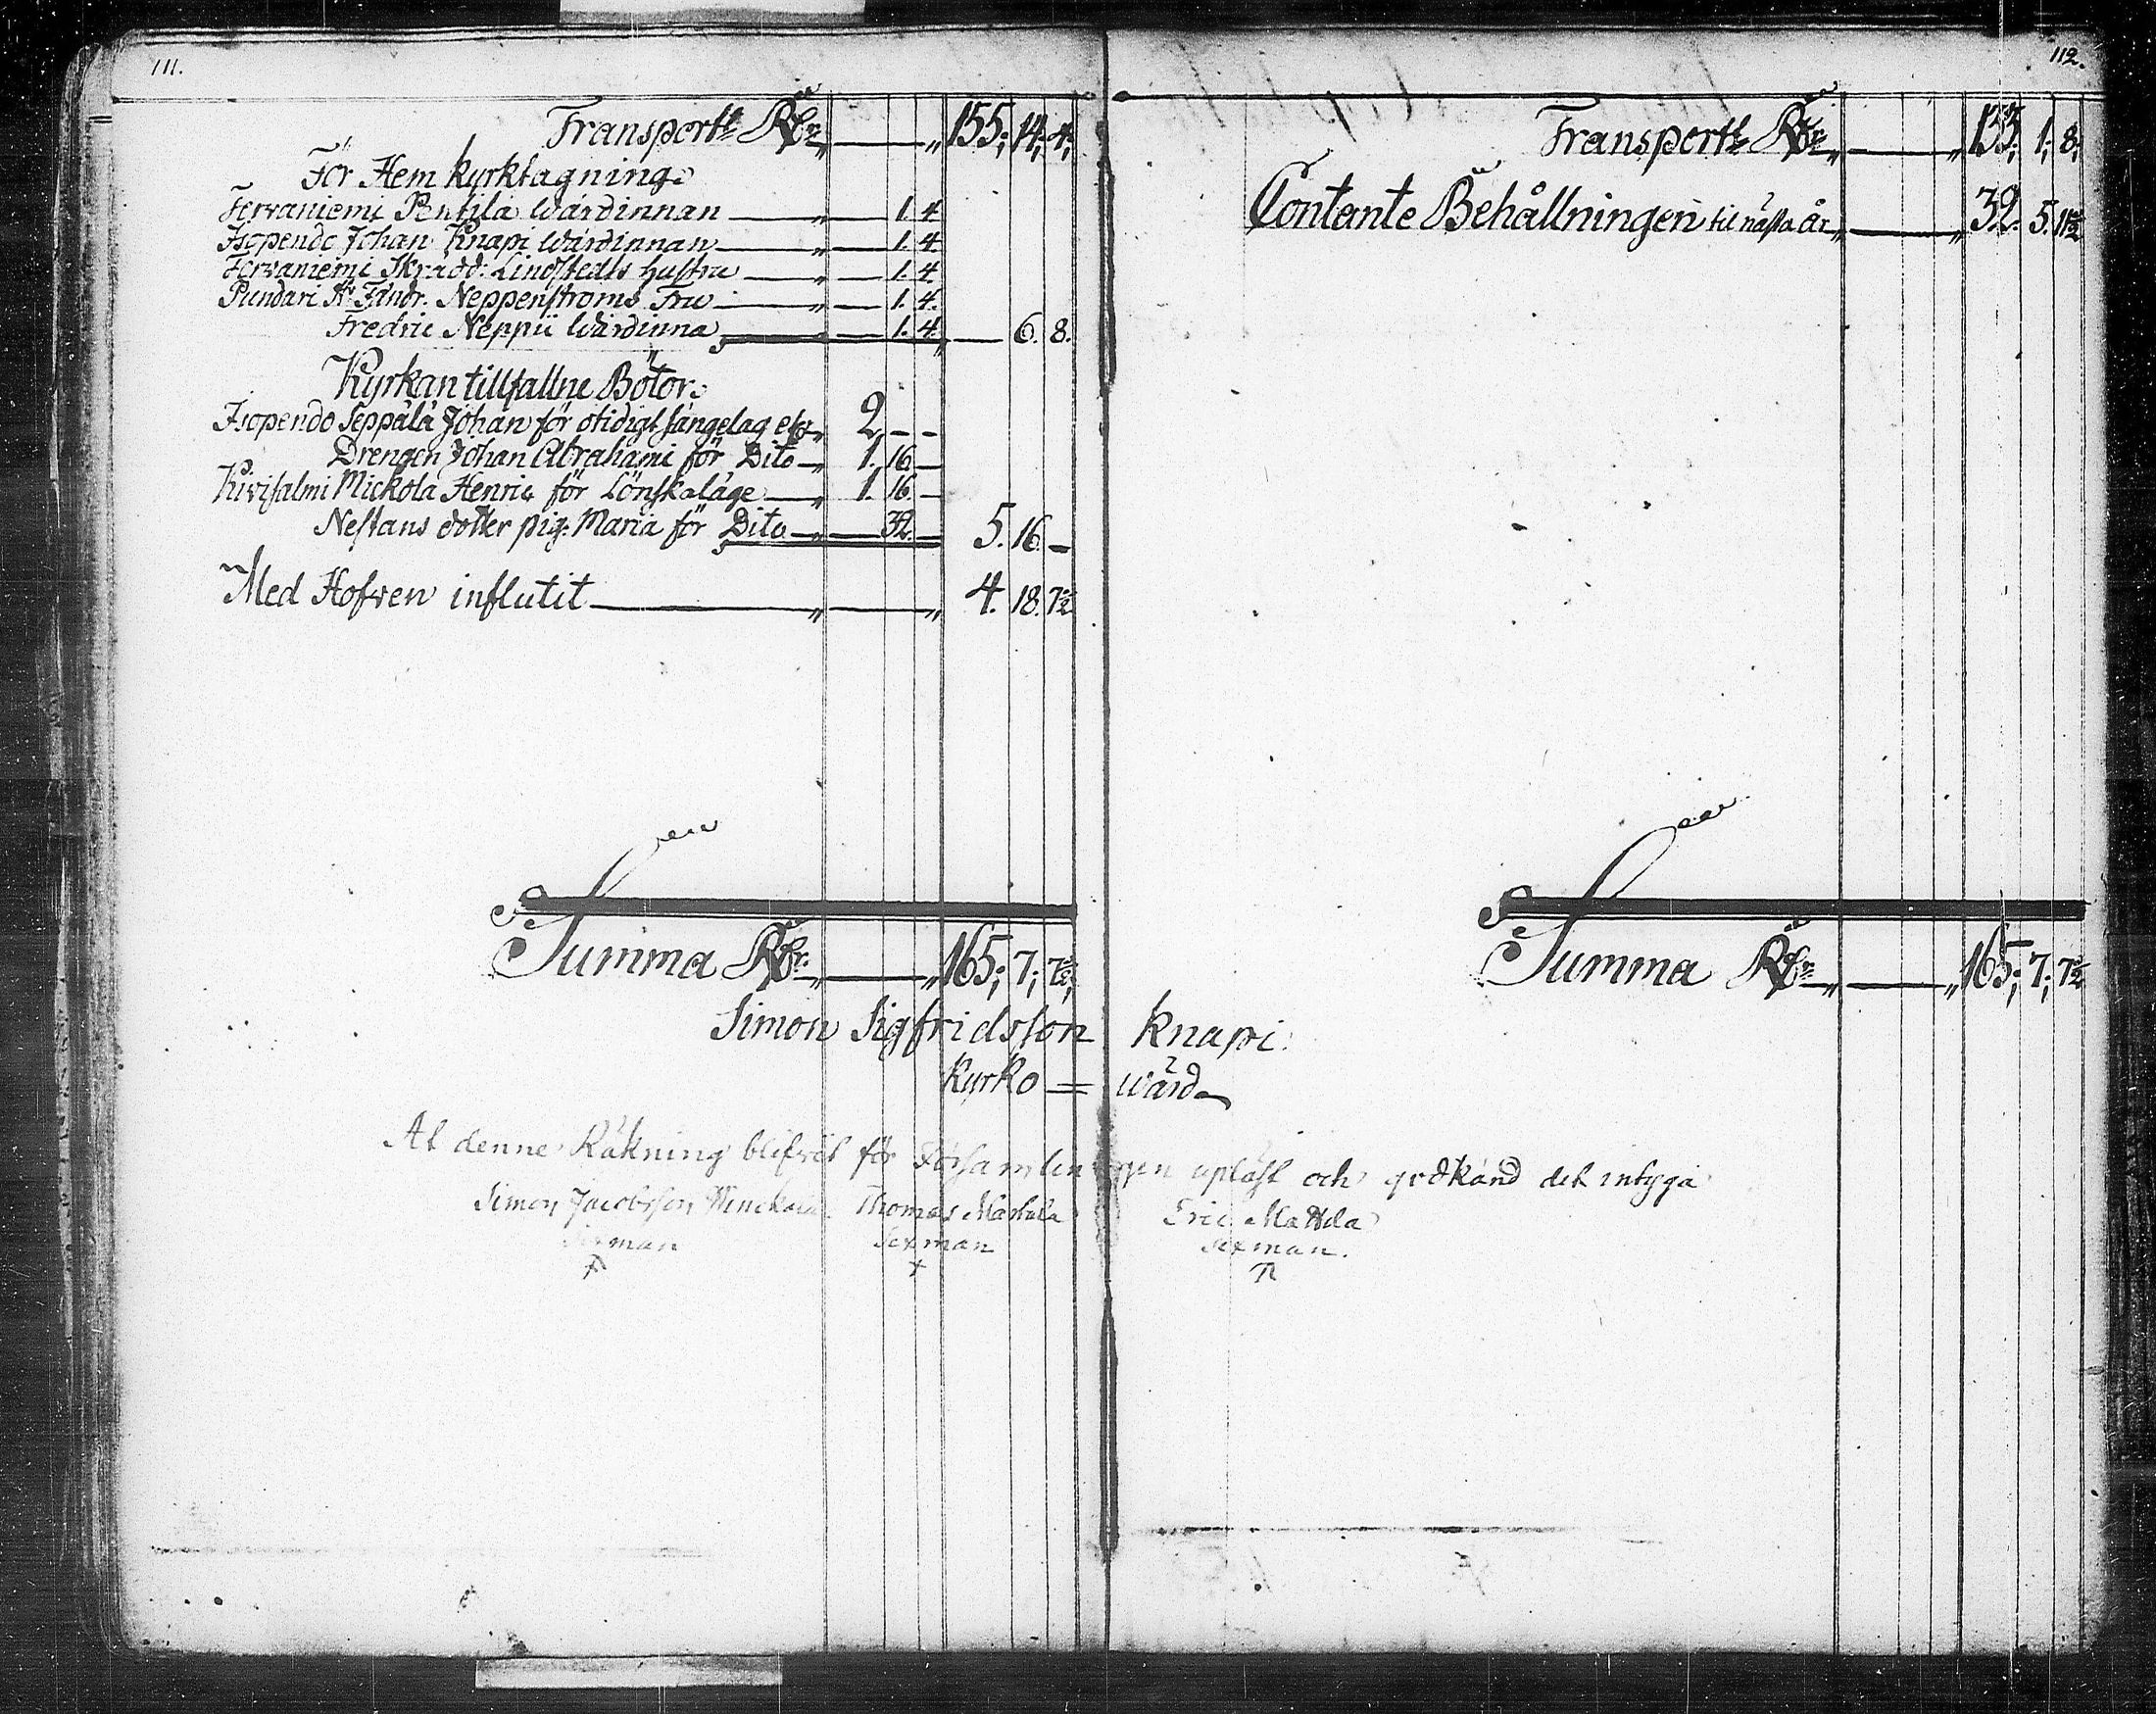 111.
Transport Rdr „ — „ 155; 14; 4;
För Hem kyrktagning
Tervaniemi Pentilä Wärdinnan — „ — 1. 4
Isopendo Johan Knapi Wärdinnan — „ — 1. 4.
Tervaniemi Skrädd: Lindstedts hustru — „ — 1. 4.
Pundari Hr Fändr. Neppenströms Fru — „ — 1. 4.
Fredric Neppii Wärdinna — „ — 1. 4. „ — 6. 8.
Kyrkan tillfallne Böter
Isopendo Seppälä Johan för otidigt sängelag „ 2 – –
Drengen Johan Abrahami för Dito — „ 1. 16. –
Kivisalmi Mickola Henric för Lönskaläge — „ 1. 16. –
Nestans dotter pig: Maria för Dito — „ — 32. – 5. 16. –
Med Hofven influtit — „ — „ 4. 18. 7½
Summa Rdr. „ — „ 165; 7; 7½;
112.
Transport Rdr „ — „ 133; 1; 8;
Contante Behållningen til nästa år „ — „ 32. 5. 11½
Summa Rdr „ — „ 165; 7; 7½
Simon Sigfridsson Knapi
Kyrko = wärd
At denne Räkning blifvit för Församlingen upläst och godkänd det intyga
Simon Jacobsson Thomas Markala Eric Mattila
Sexman Sexman Sexman.